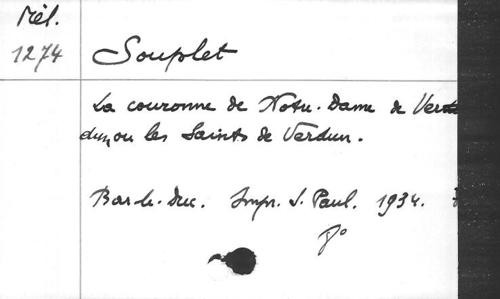 Mél.
1274
Souplet
La couronne de Notre-Dame de Ver
dun, ou les Saints de Verdun.
Bar-le-Duc. Impr. S. Paul. 1934.
8°